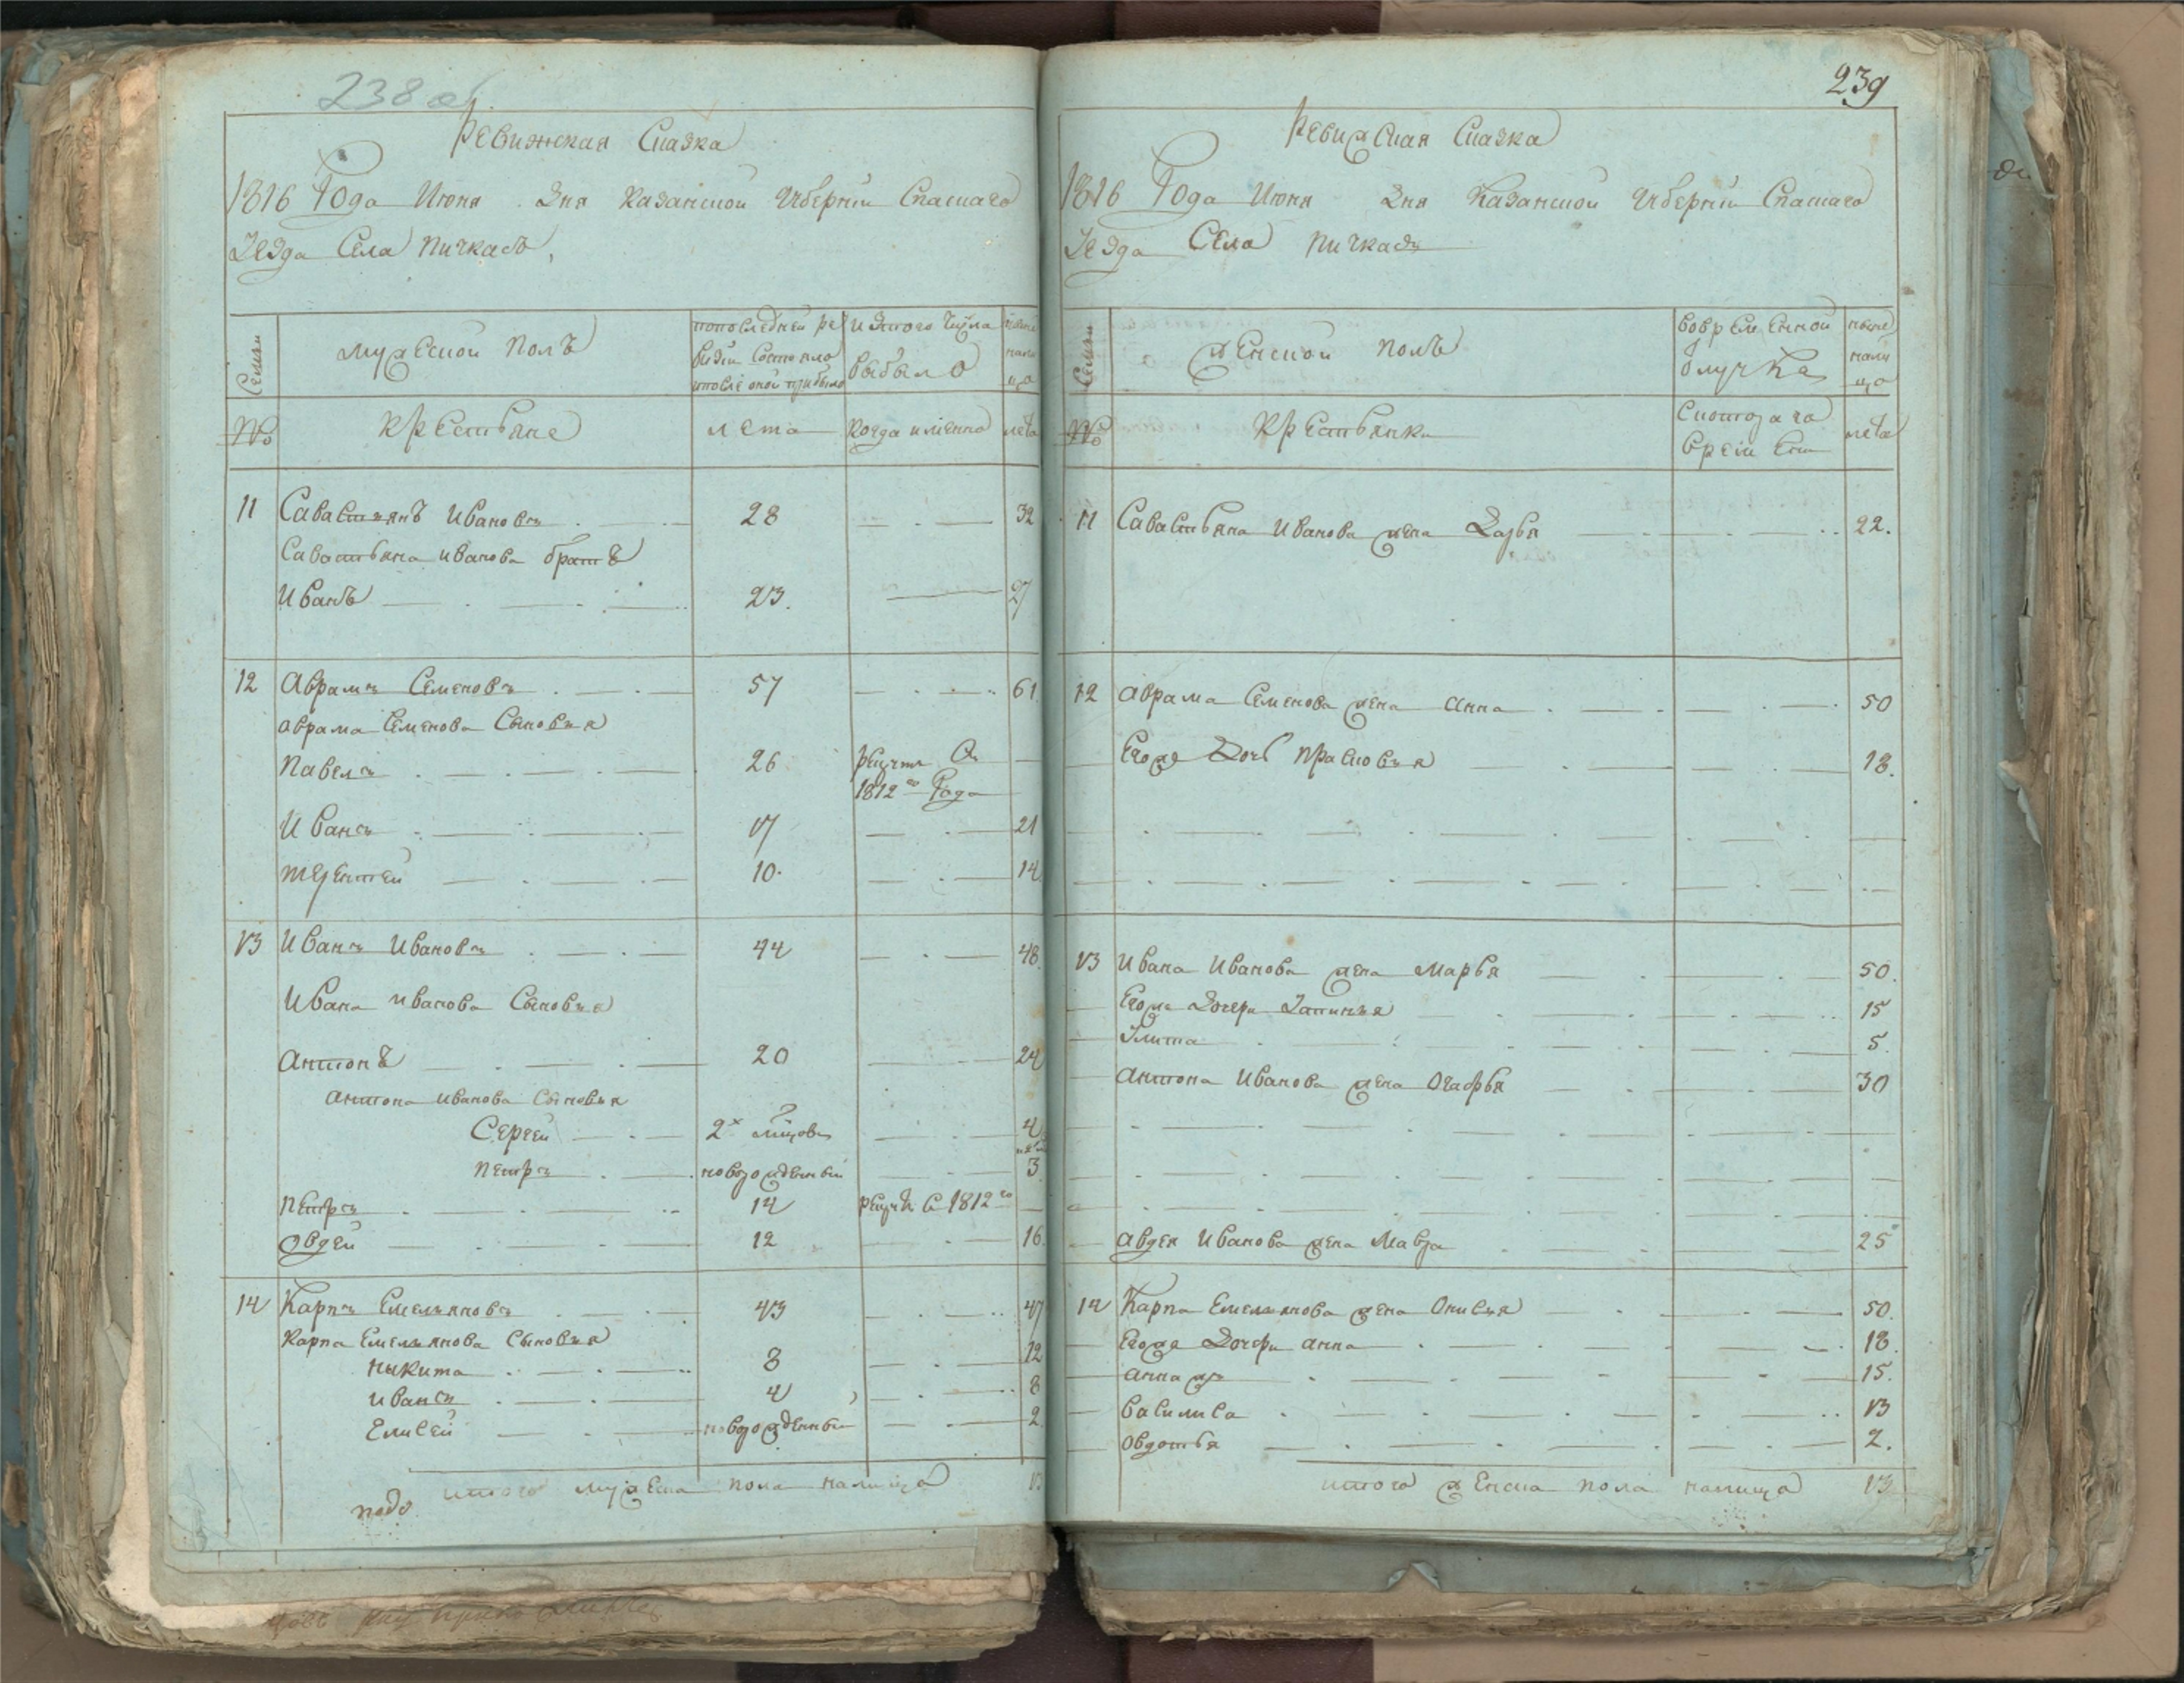 238 об.
Ревижская Сказка
1816 Года Июня Дня Казанской Губернии Спаскаго
Уезда Села Пичкасъ,
Семьи
мужеской полъ
попоследней ре
визии Состояло
ипосле оной прибыло
изтого Числа
выбыло
ныне
нали
цо
№
крестьяне
лета
Когда имянно
лета
11 Савастьянъ Ивановъ 28 32
Савастьяна иванова братъ
Иванъ 23. 27
12 Аврамъ Семеновъ 57 61
аврама Семенова Сыновья
Павелъ 26 рекрут Съ
1812го Года
Иванъ 17 21
терентей 10. 14
13 Иванъ Ивановъ 44 48
Ивана иванова Сыновья
антонъ 20 24
антона иванова Сыновья
Сергей 2х 4
Петръ новорожденный 3
Петръ 14 рекрут С 1812го
Овдей 12 16
14 Карпъ Емельяновъ 43 47
Карпа Емельянова Сыновья
Никита 8 12
иванъ 4 8
Елисей новорожденный 2
итого мужеска пола налицо 13
239
Ревижская Сказка
1816 Года Июня Дня Казанской Губернии Спаскаго
Уезда Села Пичкасъ
Семьи
женской полъ
Вовременной
Отлучке
ныне
нали
цо
№
крестьянки
Скотораго
времени
лета
11 Савастьяна Иванова жена Дарья 22.
12 аврама Семенова жена анна 50
Егоже Дочь Прасковья 18.
13 Ивана Иванова жена Марья 50.
Егоже Дочери 15
Улита 5.
антона Иванова жена Огафья 30
авдея Иванова жена Мавра 25
14 Карпа Емельянова жена Онисья 50.
Егоже Дочери анна 18.
анна ж 15.
Василиса 13
Овдотья 2.
итого женска пола налицо 13